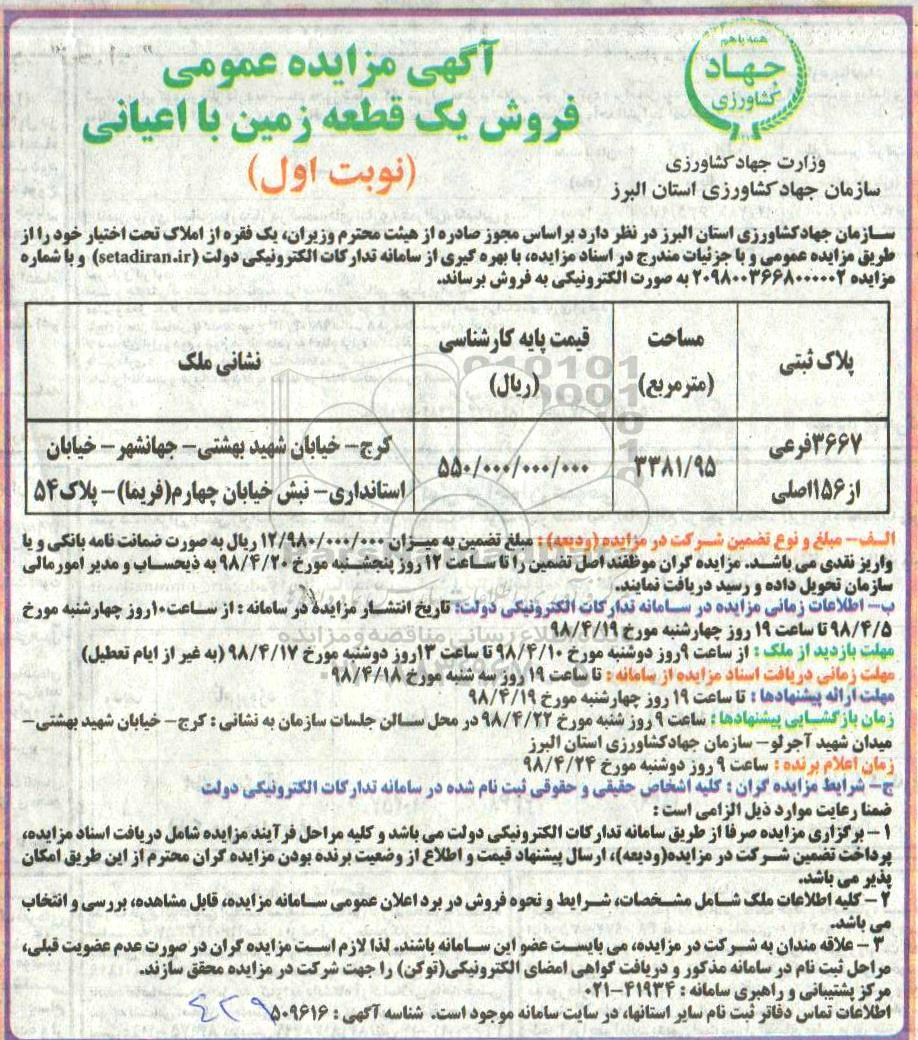 همه با هم
جهاد
کشاورزی
وزارت جهاد کشاورزی
سازمان جهاد کشاورزی استان البرز
آگهی مزایده عمومی
فروش یک قطعه زمین با اعیانی
(نوبت اول)
سازمان جهادکشاورزی استان البرز در نظر دارد براساس مجوز صادره از هیئت محترم وزیران، یک فقره از املاک تحت اختیار خود را از
طریق مزایده عمومی و با جزئیات مندرج در اسناد مزایده، با بهره گیری از سامانه تدارکات الکترونیکی دولت (setadiran.ir) و با شماره
مزایده ۲۰۹۸۰۰۳۶۶۸۰۰۰۰۰۲ به صورت الکترونیکی به فروش برساند.
پلاک ثبتی
مساحت
(مترمربع)
قیمت پایه کارشناسی
(ریال)
نشانی ملک
۳۶۶۷فرعی
از۱۵۶اصلی
۳۳۸۱/۹۵
۵۵۰/۰۰۰/۰۰۰/۰۰۰
کرج- خیابان شهید بهشتی- جهانشهر- خیابان
استانداری- نبش خیابان چهارم(فریما)- پلاک۵۴
الف- مبلغ و نوع تضمین شرکت در مزایده (ودیعه): مبلغ تضمین به میزان ۱۲/۹۸۰/۰۰۰/۰۰۰ ریال به صورت ضمانت نامه بانکی و یا
واریز نقدی می باشد. مزایده گران موظفند اصل تضمین را تا ساعت ۱۲ روز پنجشنبه مورخ ۹۸/۴/۲۰ به ذیحساب و مدیر امور مالی
سازمان تحویل داده و رسید دریافت نمایند.
ب- اطلاعات زمانی مزایده در سامانه تدارکات الکترونیکی دولت: تاریخ انتشار مزایده در سامانه : از ساعت۱۰روز چهارشنبه مورخ
۹۸/۴/۵ تا ساعت ۱۹ روز چهارشنبه مورخ ۹۸/۴/۱۹
مهلت بازدید از ملک : از ساعت ۹روز دوشنبه مورخ ۹۸/۴/۱۰ تا ساعت ۱۳روز دوشنبه مورخ ۹۸/۴/۱۷ (به غیر از ایام تعطیل)
مهلت زمانی دریافت اسناد مزایده از سامانه : تا ساعت ۱۹ روز سه شنبه مورخ ۹۸/۴/۱۸
مهلت ارائه پیشنهادها : تا ساعت ۱۹ روز چهارشنبه مورخ ۹۸/۴/۱۹
زمان بازگشایی پیشنهادها : ساعت ۹ روز شنبه مورخ ۹۸/۴/۲۲ در محل سالن جلسات سازمان به نشانی : کرج- خیابان شهید بهشتی-
میدان شهید آجرلو- سازمان جهادکشاورزی استان البرز
زمان اعلام برنده : ساعت ۹ روز دوشنبه مورخ ۹۸/۴/۲۴
ج- شرایط مزایده گران : کلیه اشخاص حقیقی و حقوقی ثبت نام شده در سامانه تدارکات الکترونیکی دولت
ضمنا رعایت موارد ذیل الزامی است :
۱- برگزاری مزایده صرفا از طریق سامانه تدارکات الکترونیکی دولت می باشد و کلیه مراحل فرآیند مزایده شامل دریافت اسناد مزایده،
پرداخت تضمین شرکت در مزایده(ودیعه)، ارسال پیشنهاد قیمت و اطلاع از وضعیت برنده بودن مزایده گران محترم از این طریق امکان
پذیر می باشد.
۲- کلیه اطلاعات ملک شامل مشخصات، شرایط و نحوه فروش در برد اعلان عمومی سامانه مزایده، قابل مشاهده، بررسی و انتخاب
می باشد.
۳- علاقه مندان به شرکت در مزایده، می بایست عضو این سامانه باشند. لذا لازم است مزایده گران در صورت عدم عضویت قبلی،
مراحل ثبت نام در سامانه مذکور و دریافت گواهی امضای الکترونیکی(توکن) را جهت شرکت در مزایده محقق سازند.
مرکز پشتیبانی و راهبری سامانه : ۴۱۹۳۴-۰۲۱
اطلاعات تماس دفاتر ثبت نام سایر استانها، در سایت سامانه موجود است. شناسه آگهی : ۵۰۹۶۱۶
۴۲۹